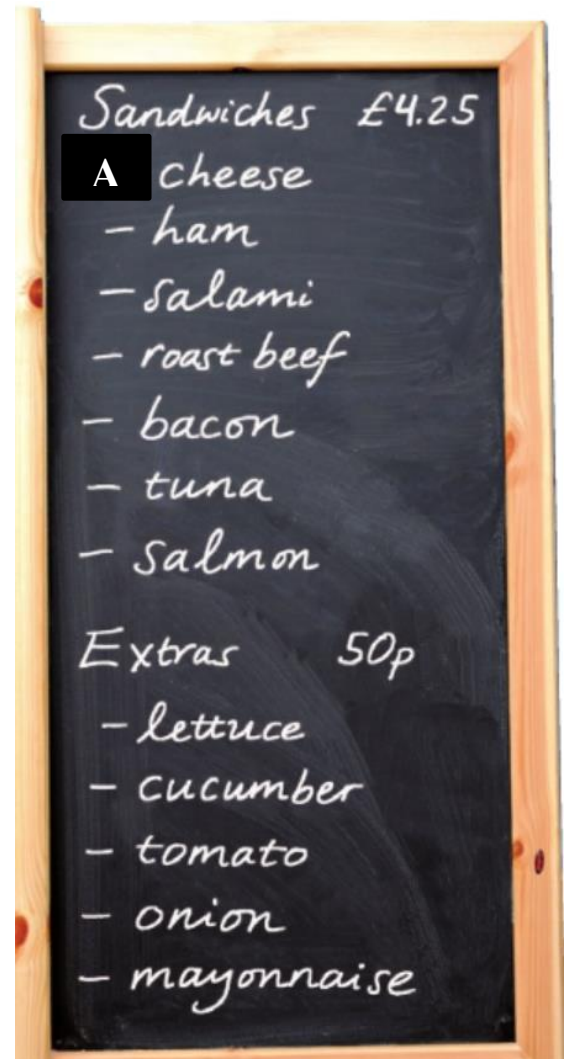 Sandwiches £4.25
A cheese
- ham
- salami
- roast beef
- bacon
- tuna
- salmon
Extras 50p
- lettuce
- cucumber
- tomato
- onion
- mayonnaise